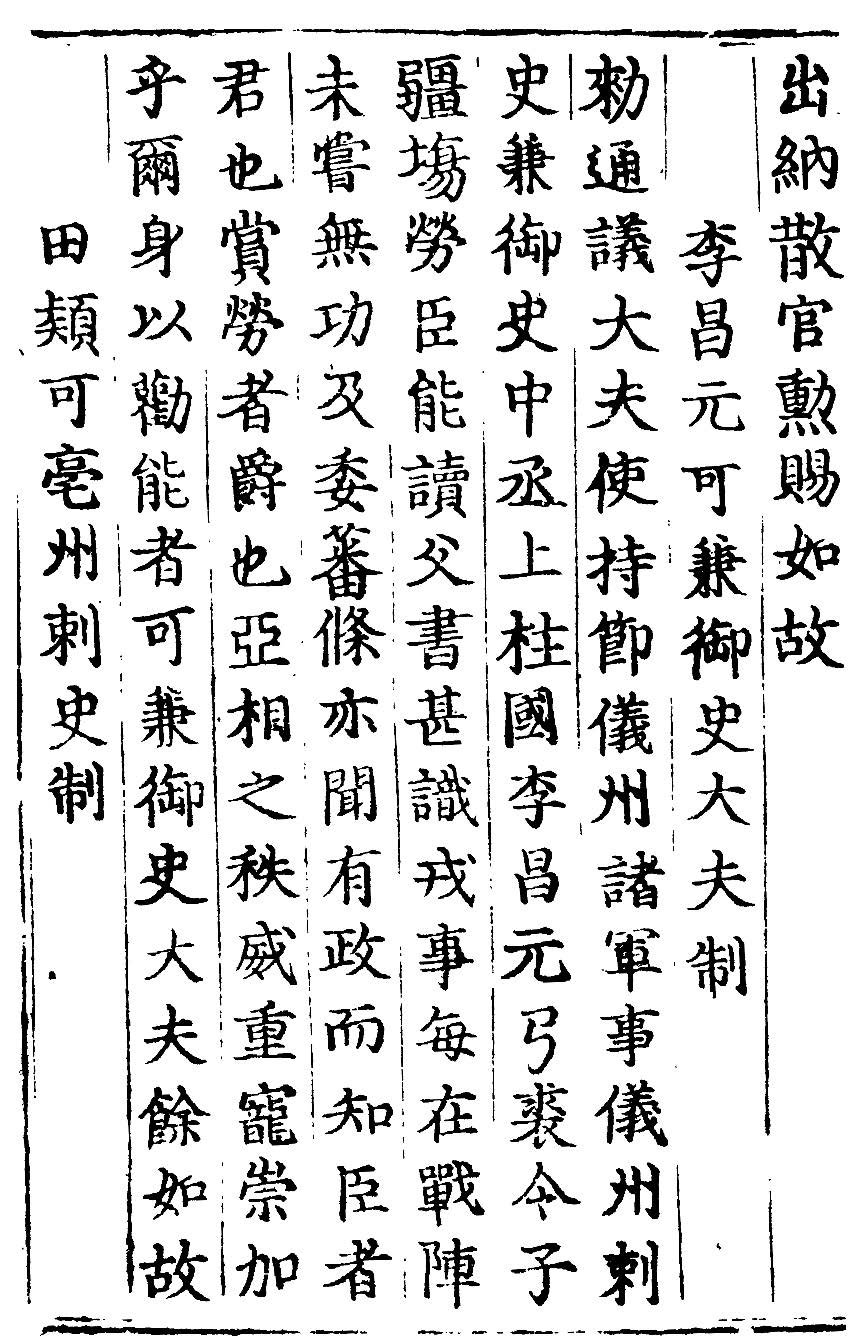 出納散官勲賜如故
李昌元可兼御史大夫制
勑通議大夫使持節儀州諸軍事儀州刺
史兼御史中丞上柱國李昌元弓裘令子
疆埸勞臣能讀父書甚識戎事每在戰陣
未嘗無功及委蕃條亦聞有政而知臣者
君也賞勞者爵也亞相之秩威重寵崇加
乎爾身以勸能者可兼御史大夫餘如故
田䫂可亳州刺史制